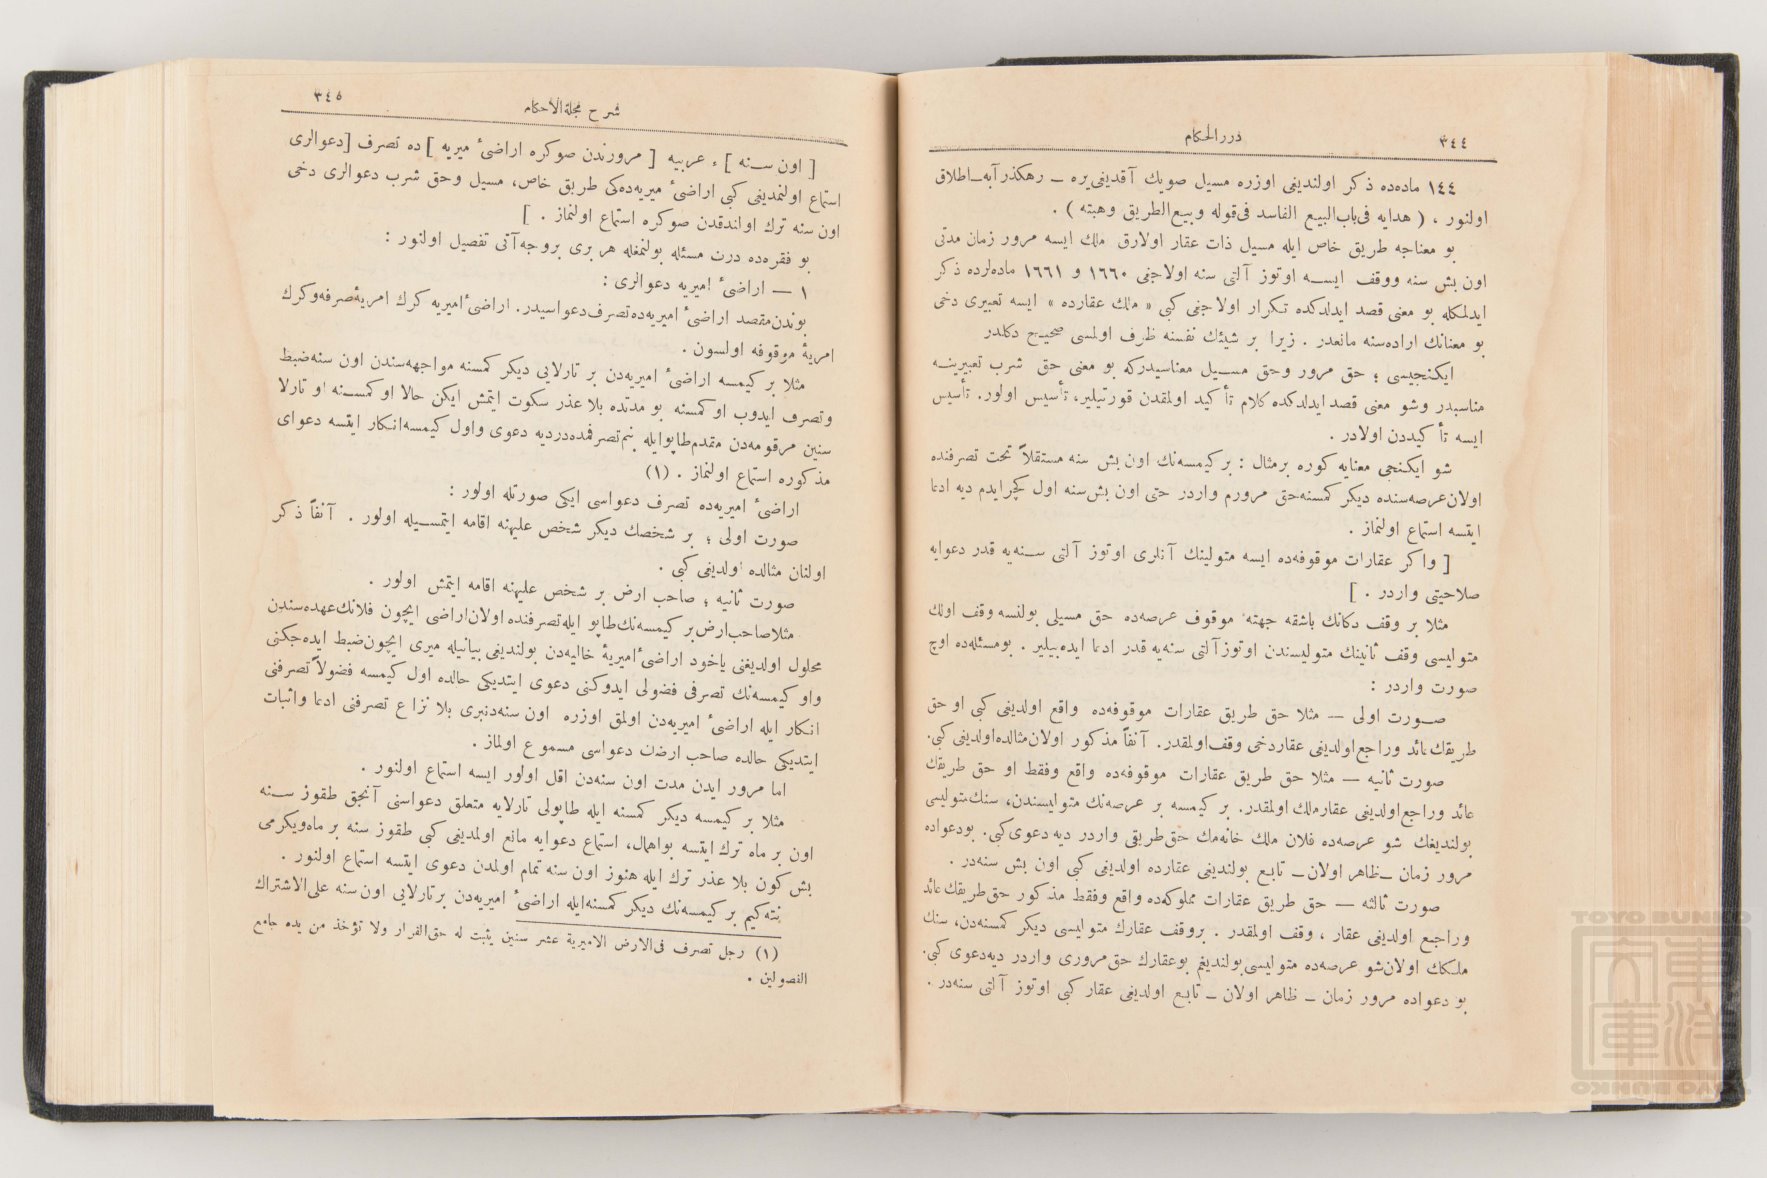 ٣٤٤
دررالحكام
١٤٤ ماده‌ده ذكر اولنديغى اوزره مسيل صويك آقديغى‌يره ــ رهكذر آبه‌ــ اطلاق
اولنور . ( هدايه فى‌باب‌البيع الفاسد فى‌قوله وبيع‌الطريق وهبته ) .
بو معناجه طريق خاص ايله مسيل ذات عقار اولارق ملك ايسه مرور زمان مدتى
اون بش سنه ووقف ايسه اوتوز آلتى سنه اولاجغى ١٦٦٠ و ١٦٦١ ماده‌لرده ذكر
ايدلمكله بو معنى قصد ايدلدكده تكرار اولاجغى كبى « ملك عقارده » ايسه تعبيرى دخى
بو معنانك اراده‌سنه مانعدر . زيرا بر شيئك نفسنه ظرف اولمسى صحيح دكلدر
ايكنجيسى ؛ حق مرور وحق مسيل معناسيدركه بو معنى حق شرب تعبيرينه
مناسبدر وشو معنى قصد ايدلدكده كلام تأكيد اولمقدن قورتيلير، تأسيس اولور. تأسيس
ايسه تأكيددن اولادر .
شو ايكنجى معنايه كوره برمثال : بر كيمسه‌نك اون بش سنه مستقلاً تحت تصرفنده
اولان عرصه‌سنده ديكر كمسنه حق مرورم واردر حتى اون بش سنه اول كچرايدم ديه ادعا
ايتسه استماع اولنماز .
[ واكر عقارات موقوفه‌ده ايسه متولينك آنلرى اوتوز آلتى سنه‌يه قدر دعوايه
صلاحيتى واردر . ]
مثلا بر وقف دكانك باشقه جهته موقوف عرصه‌ده حق مسيلى بولنسه وقف اولك
متوليسى وقف ثانينك متوليسندن اوتوزآلتى سنه‌يه قدر ادعا ايده‌بيلير . بومسئله‌ده اوچ
صورت واردر :
صورت اولى ــ مثلا حق طريق عقارات موقوفه‌ده واقع اولديغى كبى او حق
طريقك عائد وراجع اولديغى عقاردخى وقف‌اولمقدر. آنفاً مذكور اولان‌مثالده‌اولديغى كبى.
صورت ثانيه ــ مثلا حق طريق عقارات موقوفه‌ده واقع وفقط او حق طريقك
عائد وراجع‌اولديغى عقارملك اولمقدر. بر كيمسه بر عرصه‌نك متوليسندن، سنك‌متوليسى
بولنديغك شو عرصه‌ده فلان ملك خانه‌مك حق‌طريقى واردر ديه دعوى‌كبى. بودعواده
مرور زمان ــ ظاهر اولان ــ تابع بولنديغى عقارده اولديغى كبى اون بش سنه‌در .
صورت ثالثه ــ حق طريق عقارات مملوكه‌ده واقع وفقط مذكور حق‌طريقك عائد
وراجع اولديغى عقار ، وقف اولمقدر . بروقف عقارك متوليسى ديكر كمسنه‌دن، سنك
ملكك اولان‌شو عرصه‌ده متوليسى‌بولنديغم بوعقارك حق‌مرورى واردر ديه‌دعوى كبى.
بو دعواده مرور زمان ــ ظاهر اولان ــ تابع اولديغى عقار كبى اوتوز آلتى سنه‌در .
شرح مجلةالأحكام
٣٤٥
[ اون سنه ] ء عربيه [ مرورندن صوكره اراضئ ميريه ] ده تصرف [ دعوالرى
استماع اولنمديغى كبى اراضئ ميريه‌ده‌كى طريق خاص، مسيل وحق شرب دعوالرى دخى
اون سنه ترك اولندقدن صوكره استماع اولنماز . ]
بو فقره‌ده درت مسئله بولنمغله هر برى بروجه‌آتى تفصيل اولنور :
١ ــ اراضئ اميريه دعوالرى :
بوندن‌مقصد اراضئ اميريه‌ده تصرف دعواسيدر. اراضئ‌اميريه كرك اميريۀصرفه‌وكرك
اميريۀ موقوفه اولسون .
مثلا بر كيمسه اراضئ اميريه‌دن بر تارلايى ديكر كمسنه مواجهه‌سندن اون سنه‌ضبط
وتصرف ايدوب او كمسنه بو مدتده بلا عذر سكوت ايتمش ايكن حالا او كمسنه او تارلا
سنين مرقومه‌دن مقدم طاپو ايله بنم‌تصرفمده‌درديه دعوى واول كيمسه انكار ايتسه دعواى
مذكوره استماع اولنماز . (١)
اراضئ اميريه‌ده تصرف دعواسى ايكى صورتله اولور :
صورت اولى ؛ بر شخصك ديكر شخص عليهنه اقامه ايتمسيله اولور . آنفاً ذكر
اولنان مثالده اولديغى كبى .
صورت ثانيه ؛ صاحب ارض بر شخص عليهنه اقامه ايتمش اولور .
مثلاصاحب‌ارض‌بر كيمسه‌نك‌طاپو ايله‌تصرفنده اولان‌اراضى ايچون فلانك‌عهده‌سندن
محلول اولديغنى ياخود اراضئ‌اميريۀ خاليه‌دن بولنديغى بيانيله ميرى ايچون‌ضبط ايده‌جكنى
واو كيمسه‌نك تصرفى فضولى ايدوكنى دعوى ايتديكى حالده اول كيمسه فضولاً تصرفنى
انكار ايله اراضئ اميريه‌دن اولمق اوزره اون سنه‌دنبرى بلا نزاع تصرفنى ادعا واثبات
ايتديكى حالده صاحب ارضك دعواسى مسموع اولماز .
اما مرور ايدن مدت اون سنه‌دن اقل اولور ايسه استماع اولنور .
مثلا بر كيمسه ديكر كمسنه ايله طاپولى تارلايه متعلق دعواسنى آنجق طقوز سنه
اون بر ماه ترك ايتسه بواهمال، استماع دعوايه مانع اولمديغى كبى طقوز سنه بر ماه‌ويكرمى
بش كون بلا عذر ترك ايله هنوز اون سنه تمام اولمدن دعوى ايتسه استماع اولنور .
نته‌كيم بر كيمسه‌نك ديكر كمسنه‌ايله اراضئ اميريه‌دن برتارلايى اون سنه على‌الاشتراك
(١) رجل تصرف فى‌الارض الاميرية عشر سنين يثبت له حق‌القرار ولا تؤخذ من يده جامع
الفصولين .
TOYO BUNKO
東洋文庫
TOYO BUNKO